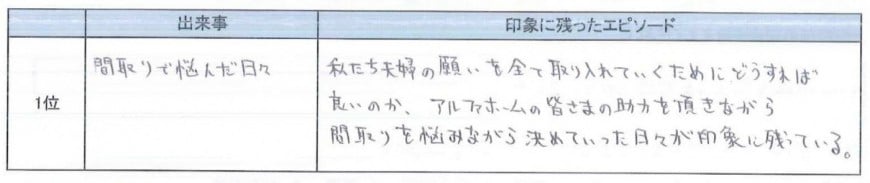 出来事 印象に残ったエピソード
1位
間取りで悩んだ日々
私たち夫婦の願いを全て取り入れていくためにどうすれば
良いのか、アルファホームの皆さまの助力を頂きながら
間取りを悩みながら決めていった日々が印象に残っている。